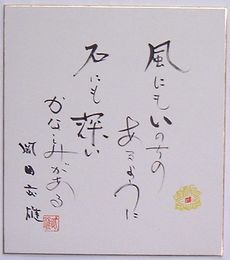 風にもいのちの
あるように
石にも深い
かなしみがある